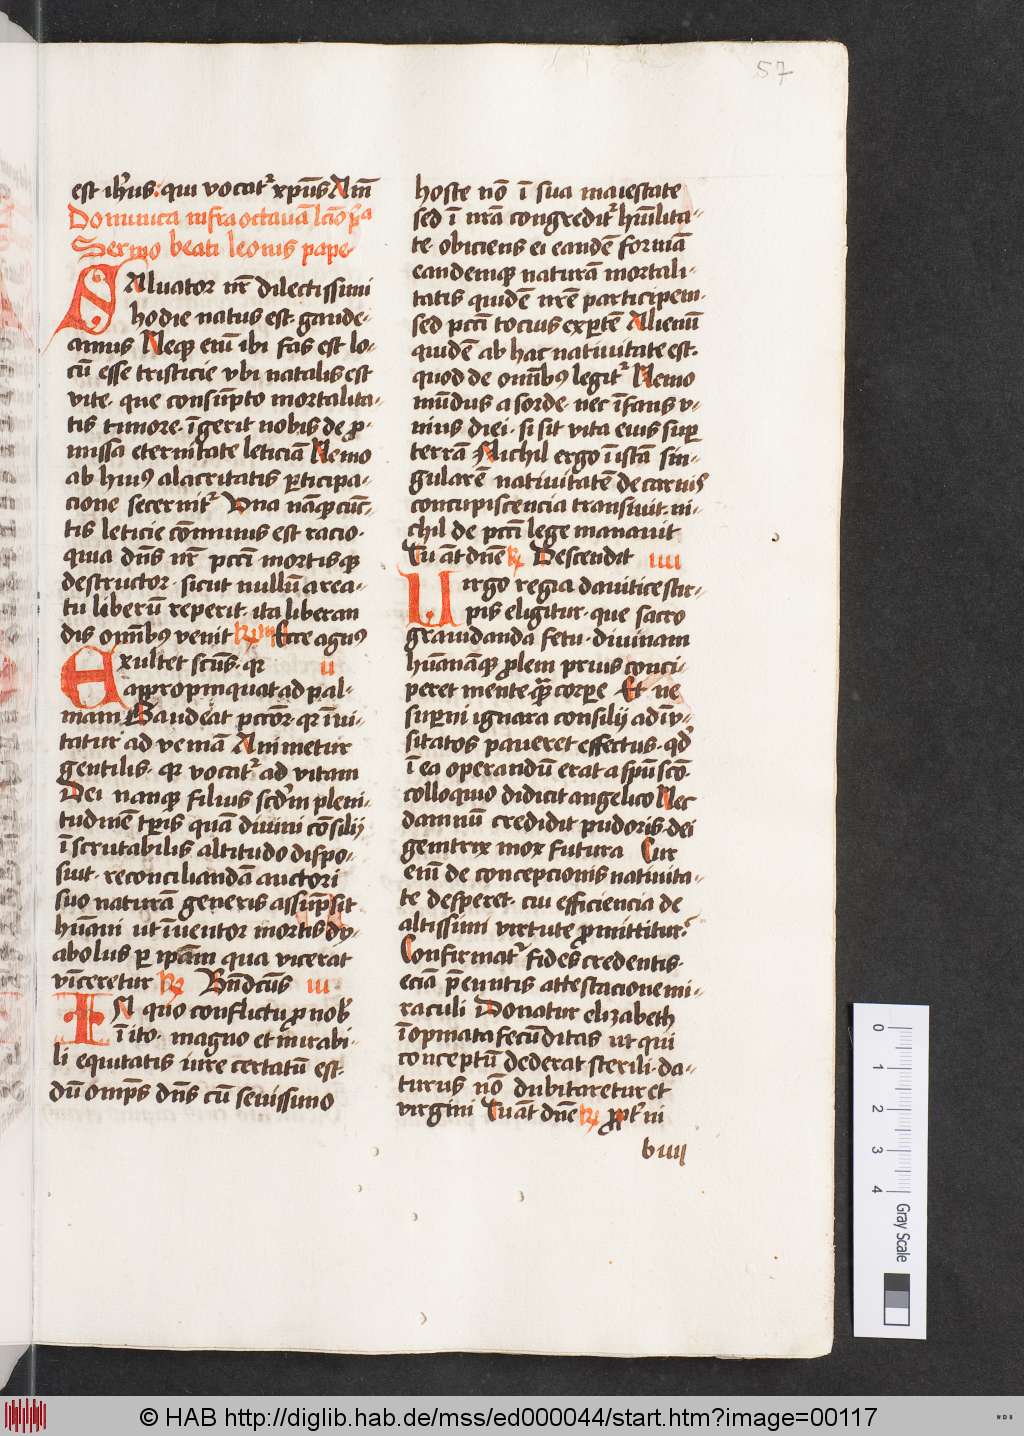 57
est ihus qui vocat᷑ xpūs Amē
Dominica infra octauā lcīo p̄a
Sermo beati leonis pape
SAluator nr̄ dilectissimi
hodie natus est· gaude-
amus Neqꝫ em̄ ibi fas est lo-
cū esse tristicie vbi natalis est
vite· que consūpto mortalita-
tis timore· īgerit nobis de ꝓ-
missa eternitate leticiā Nemo
ab huiꝰ alacritatis ꝑticipa-
cione secernit᷑ Vna nāqꝫ cūc-
tis leticie cōmunis est racio·
quia dn̄s nr̄ pctī mortisqꝫ
destructor· sicut nullū a rea-
tu liberū reperit· ita liberan
dis omībꝰ venit Ecce agnꝰ
Exultet scūs· qr ii
appropinquat ad pal-
mam Gaudeat pctōr· qr īui-
tatur ad veniā Animetur
gentilis· qr vocat᷑ ad vitam
Dei nanqꝫ filius scd'm pleni-
tudinē tp̄ris quā diuini cōsilij
īscrutabilis altitudo dispo-
suit· reconciliandā auctori
suo naturā generis assūpsit
hūani ut īuentor mortis dy-
abolus per ip̄am qua vicerat
vīceretur ℟ Bn̄dcūs iii
IN quo conflictu pro nob̄
īito· magno et mirabi-
li equitatis iure certatū est·
dū omp̄s dn̄s cū seuissimo
hoste nō ī sua maiestate
sed ī nr̄a congredit᷑ hūilita-
te· obiciens ei eandē formā
eandemqꝫ naturā mortali-
tatis quidē nr̄e participem·
sed pctī tocius exꝑtē Alienū
quidē ab hac natiuitate est·
quod de omībꝰ legit᷑ Nemo
mūdus a sorde· nec īfans v-
nius diei· si sit vita eius suꝑ
terrā Nichil ergo ī istā sin-
gularē natiuitatē de carnis
concupiscencia transiuit· ni-
chil de pctī lege manauit
Tu aūt dn̄e ℟ Descendit iiii
Uirgo regia dauitice stir-
pis eligitur· que sacro
grauidanda fetu· diuinam
hūanāqꝫ ꝓlem prius conci-
peret mente quā corꝑe Et ne
suꝑni ignara consilij ad īu-
sitatos paueret effectus· qd'
ī ea operandū erat a spū scō·
colloquio didicit angelico Nec
damnū credidit pudoris· dei
genitrix mox futura Cur
em̄ de concepcionis nouita-
te desperet· cui efficiencia de
altissimi virtute promittitur?
Confirmat᷑ fides credentis·
eciā p̄euntis attestacione mi-
raculi Donatur elizabeth
īopinata fecūditas ut qui
conceptū dederat sterili· da-
turus nō dubitaretur et
virgini Tu aūt dn̄e ℟ ꝓpt᷑ ni
b iiij
0 1 2 3 4
Gray Scale
© HAB http://diglib.hab.de/mss/ed000044/start.htm?image=00117